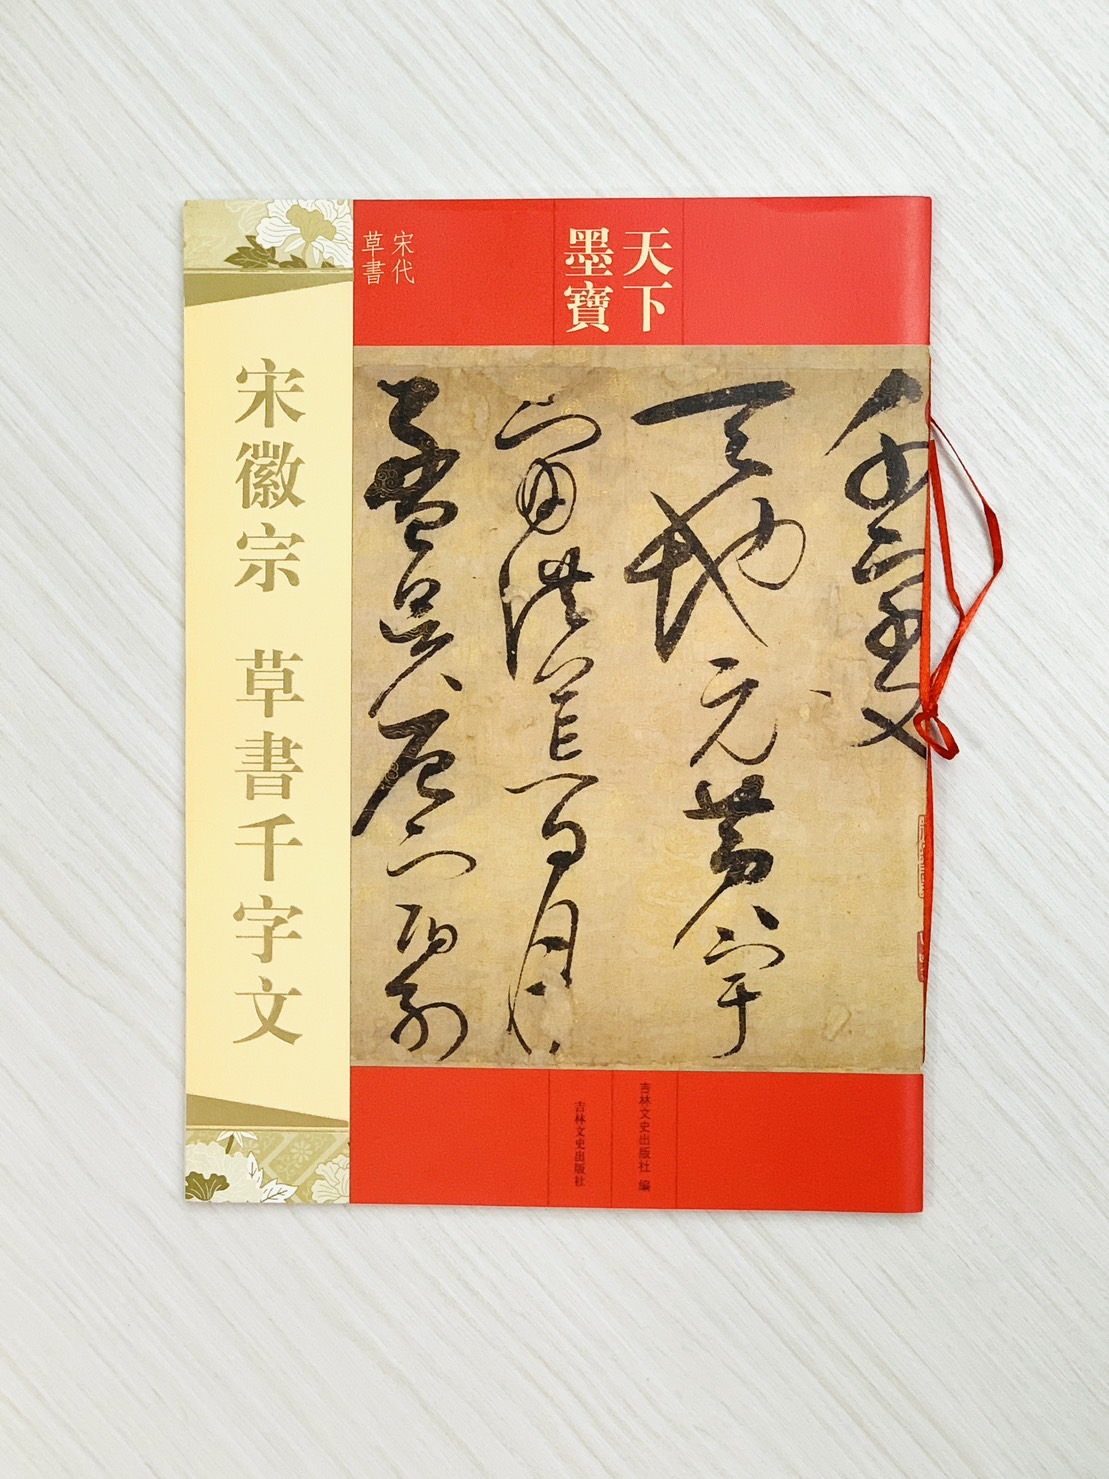 天下
墨寶
宋代
草書
宋徽宗 草書千字文
千字文
天地元黄宇
宙洪荒日月
盈昃辰宿列
吉林文史出版社 編
吉林文史出版社